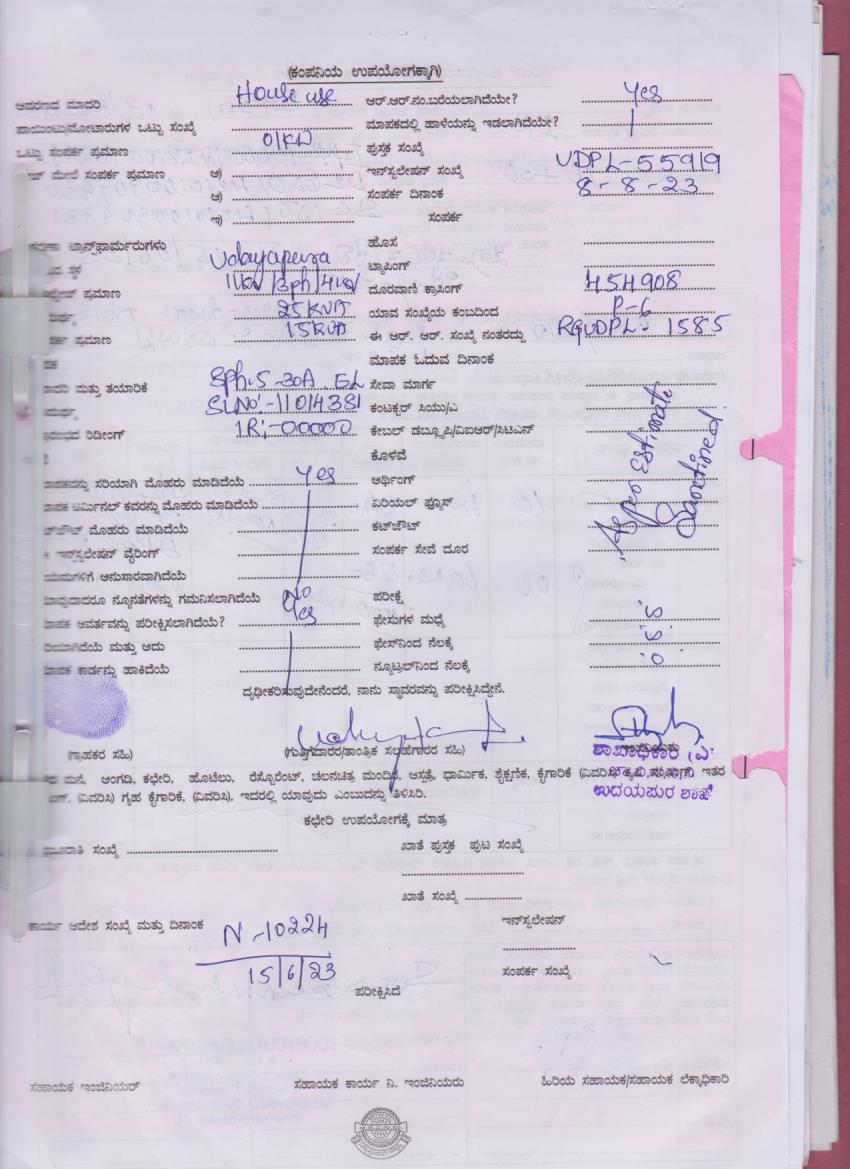 (ಕಂಪನಿಯ ಉಪಯೋಗಕ್ಕಾಗಿ)
ಆವರಣದ ಮಾದರಿ House use
ಪಾಯಿಂಟು/ಮೋಟಾರುಗಳ ಒಟ್ಟು ಸಂಖ್ಯೆ
ಒಟ್ಟು ಸಂಪರ್ಕ ಪ್ರಮಾಣ 01KW
ಮೇಲೆ ಸಂಪರ್ಕ ಪ್ರಮಾಣ ಅ)
ಆ)
ಇ)
ಟ್ರಾನ್ಸ್‌ಫಾರ್ಮರುಗಳು
ಸ್ಥಳ Udayapura
ಪ್ರಮಾಣ 11KV/3ph/4KV
25KVA
ಪ್ರಮಾಣ 15KVA
ಮತ್ತು ತಯಾರಿಕೆ 3ph.5-30A EL
SLNO:-11014381
ರಿಡೀಂಗ್ IR;-00000
ಸರಿಯಾಗಿ ಮೊಹರು ಮಾಡಿದೆಯೆ Yes
ಟರ್ಮಿನಲ್ ಕವರನ್ನು ಮೊಹರು ಮಾಡಿದೆಯೆ
ಮೊಹರು ಮಾಡಿದೆಯೆ
ಇನ್‌ಸ್ಟಲೇಷನ್ ವೈರಿಂಗ್
ಅನುಸಾರವಾಗಿದೆಯೆ
ನ್ಯೂನತೆಗಳನ್ನು ಗಮನಿಸಲಾಗಿದೆಯೆ No
ಆವರ್ತವನ್ನು ಪರೀಕ್ಷಿಸಲಾಗಿದೆಯೆ? Yes
ಮತ್ತು ಅದು
ಕಾರ್ಡನ್ನು ಹಾಕಿದೆಯೆ
ಆರ್.ಆರ್.ನಂ.ಬರೆಯಲಾಗಿದೆಯೇ? Yes
ಮಾಪಕದಲ್ಲಿ ಹಾಳೆಯನ್ನು ಇಡಲಾಗಿದೆಯೇ?
ಪುಸ್ತಕ ಸಂಖ್ಯೆ
ಇನ್‌ಸ್ಟಲೇಷನ್ ಸಂಖ್ಯೆ UDPL-55919
ಸಂಪರ್ಕ ದಿನಾಂಕ 8-8-23
ಸಂಪರ್ಕ
ಹೊಸ
ಟ್ಯಾಪಿಂಗ್
ದೂರವಾಣಿ ಕ್ರಾಸಿಂಗ್ 454908
ಯಾವ ಸಂಖ್ಯೆಯ ಕಂಬದಿಂದ P-6
ಈ ಆರ್. ಆರ್. ಸಂಖ್ಯೆ ನಂತರದ್ದು RGUDPL- 1585
ಮಾಪಕ ಓದುವ ದಿನಾಂಕ
ಸೇವಾ ಮಾರ್ಗ
ಕಂಟಕ್ಟರ್ ಸಿಯು/ಎ
ಕೇಬಲ್ ಡಬ್ಲ್ಯೂಪಿ/ವಿಐಆರ್/ಸಿಟಿಎಸ್
ಕೊಳವೆ
ಅರ್ಥಿಂಗ್
ಏರಿಯಲ್ ಫ್ಯೂಸ್
ಕಟ್‌ಔಟ್
ಸಂಪರ್ಕ ಸೇವೆ ದೂರ
Asper Estimate
Sanctined
ಪರೀಕ್ಷೆ
ಫೇಸುಗಳ ಮಧ್ಯೆ
ಫೇಸ್‌ನಿಂದ ನೆಲಕ್ಕೆ
ನ್ಯೂಟ್ರಲ್‌ನಿಂದ ನೆಲಕ್ಕೆ
ದೃಢೀಕರಿಸುವುದೇನೆಂದರೆ, ನಾನು ಸ್ಥಾವರವನ್ನು ಪರೀಕ್ಷಿಸಿದ್ದೇನೆ.
(ಗ್ರಾಹಕರ ಸಹಿ) (ಗುತ್ತಿಗೆದಾರರ/ತಾಂತ್ರಿಕ ಸಲಹೆಗಾರರ ಸಹಿ)
ಶಾಖಾಧಿಕಾರಿ
ಉದಯಪುರ ಶಾಖೆ
ಮನೆ, ಅಂಗಡಿ, ಕಛೇರಿ, ಹೊಟೆಲು, ರೆಸ್ಟೋರೆಂಟ್, ಚಲನಚಿತ್ರ ಮಂದಿರ, ಆಸ್ಪತ್ರೆ, ಧಾರ್ಮಿಕ, ಶೈಕ್ಷಣಿಕ, ಕೈಗಾರಿಕೆ (ವಿವರಿಸಿ) ಇತರ
(ವಿವರಿಸಿ) ಗೃಹ ಕೈಗಾರಿಕೆ, (ವಿವರಿಸಿ), ಇದರಲ್ಲಿ ಯಾವುದು ಎಂಬುದನ್ನು ತಿಳಿಸಿರಿ.
ಕಛೇರಿ ಉಪಯೋಗಕ್ಕೆ ಮಾತ್ರ
ಸಂಖ್ಯೆ ಖಾತೆ ಪುಸ್ತಕ ಪುಟ ಸಂಖ್ಯೆ
ಖಾತೆ ಸಂಖ್ಯೆ
ಕಾರ್ಯ ಆದೇಶ ಸಂಖ್ಯೆ ಮತ್ತು ದಿನಾಂಕ N-10224 ಇನ್‌ಸ್ಟಲೇಷನ್
15/6/23 ಸಂಪರ್ಕ ಸಂಖ್ಯೆ
ಪರೀಕ್ಷಿಸಿದೆ
ಸಹಾಯಕ ಇಂಜಿನಿಯರ್ ಸಹಾಯಕ ಕಾರ್ಯ ನಿ. ಇಂಜಿನಿಯರು ಹಿರಿಯ ಸಹಾಯಕ/ಸಹಾಯಕ ಲೆಕ್ಕಾಧಿಕಾರಿ